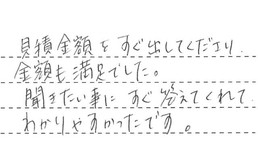 見積金額をすぐ出してくださり、
金額も満足でした。
聞きたい事にすぐ答えてくれて
わかりやすかったです。